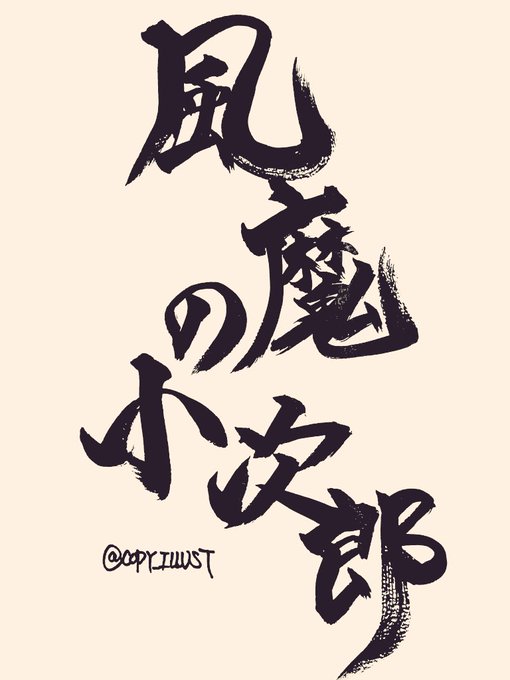 風魔
の
小次郎
@COPY_ILLUST